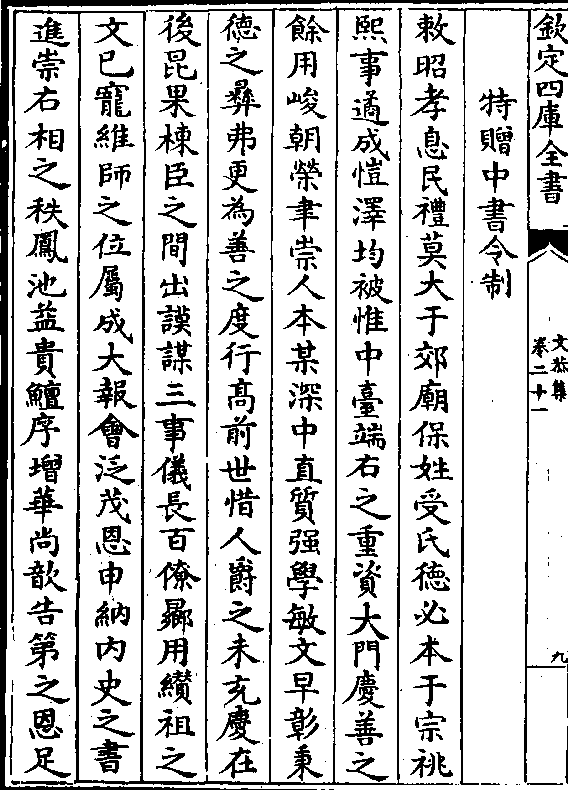 欽定四庫全書
文恭集
卷二十一
九
特贈中書令制
敕昭孝息民禮莫大于郊廟保姓受氏德必本于宗祧
熙事遹成愷澤均被惟中臺端右之重資大門慶善之
餘用峻朝榮聿崇人本某深中直質强學敏文早彰秉
德之彞弗更為善之度行髙前世惜人爵之未充慶在
後昆果棟臣之間出謨謀三事儀長百僚曏用纘祖之
文已寵維師之位屬成大報會泛茂恩申納内史之書
進崇右相之秩鳳池益貴鱣序增華尚歆告第之恩足